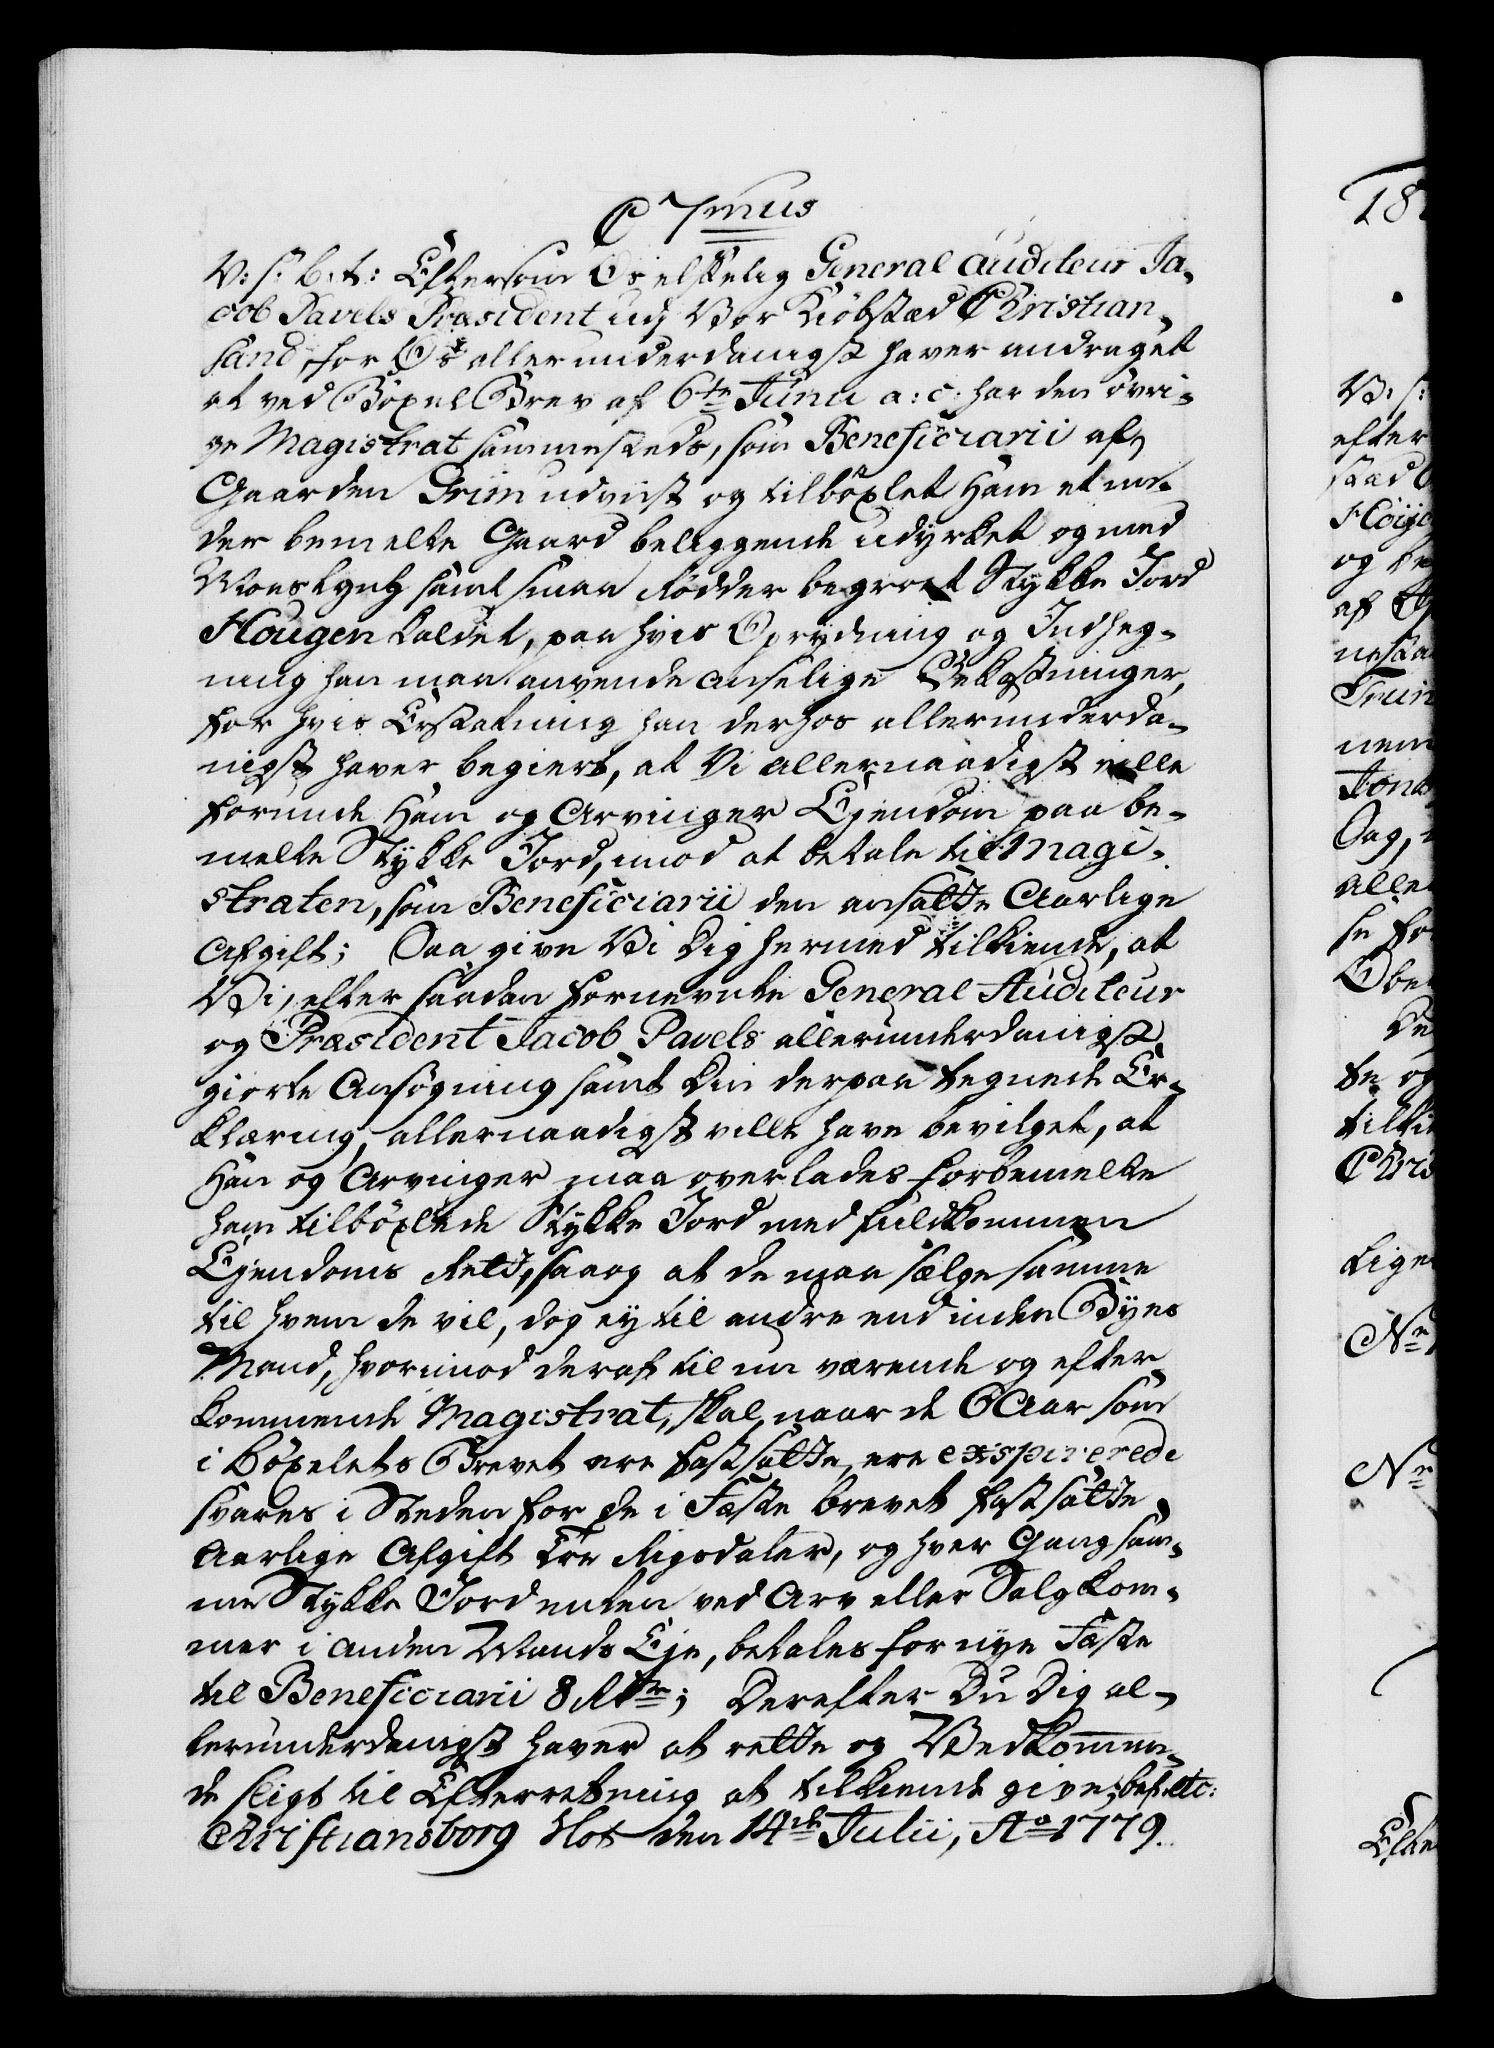 C 7mus
V: s: b: t: Eftersom Os elskelig General Auditeur Ja-
cob Pavels Præsident udj Vor Kiöbstæd Christian-
sand, for Os allerunderdanigst haver andraget
at ved Böxel Brev af 6te Junii a: c: har den övri-
ge Magistrat sammesteds, som Beneficiarii af
Gaarden Grim udviist og tilböxlet Ham et un-
der bemelte Gaard beliggende udyrket og med
Moeslyng samt smaa Rödder begroet Stykke Jord
Hougen kaldet, paa hvis Oprydning og Indheg-
ning han maa anvende anselige Bekostninger,
for hvis Erstatning han derhos allerunderda-
nigst haver begiert, at Vi allernaadigst ville
forunde Ham og Arvinger Ejendom paa be-
melte Stykke Jord, mod at betale til Magi-
straten, som Beneficiarii den ansatte Aarlige
Afgift; Saa give Vi Dig hermed tilkiende, at
Vi, efter saadan fornevnte General Auditeur
og Præsident Jacob Pavels allerunderdanigst
giorte Ansögning samt Din derpaa tegnede Er-
klæring, allernaadigst ville have bevilget, at
Han og Arvinger maa overlades forbemelte
ham tilböxlede Stykke Jord med fuldkommen
Ejendoms Rett, saa og at de maa sælge samme
til hvem de vil, dog ey til andre end inden Byes
Mænd, hvorimod deraf til nu værende og efter-
kommende Magistrat, skal, naar de 6 Aar som
i Böxelets Brevet ere fastsatte, ere exspirerede
svares i Steden for de i Fæste brevet fastsatte
Aarlige Afgift Tre Rigsdaler, og hver Gang sam-
me Stykke Jord enten ved Arv eller Salg kom-
mer i anden Mands Eje, betales for nye Fæste
til Beneficiarii 8 Rdr; Derefter Du Dig al-
lerunderdanigst haver at rette og Vedkommen-
de sligt til Efterretning at tilkiende give; bef: etc:
Christiansborg Slot den 14de Julii, Ao 1779.